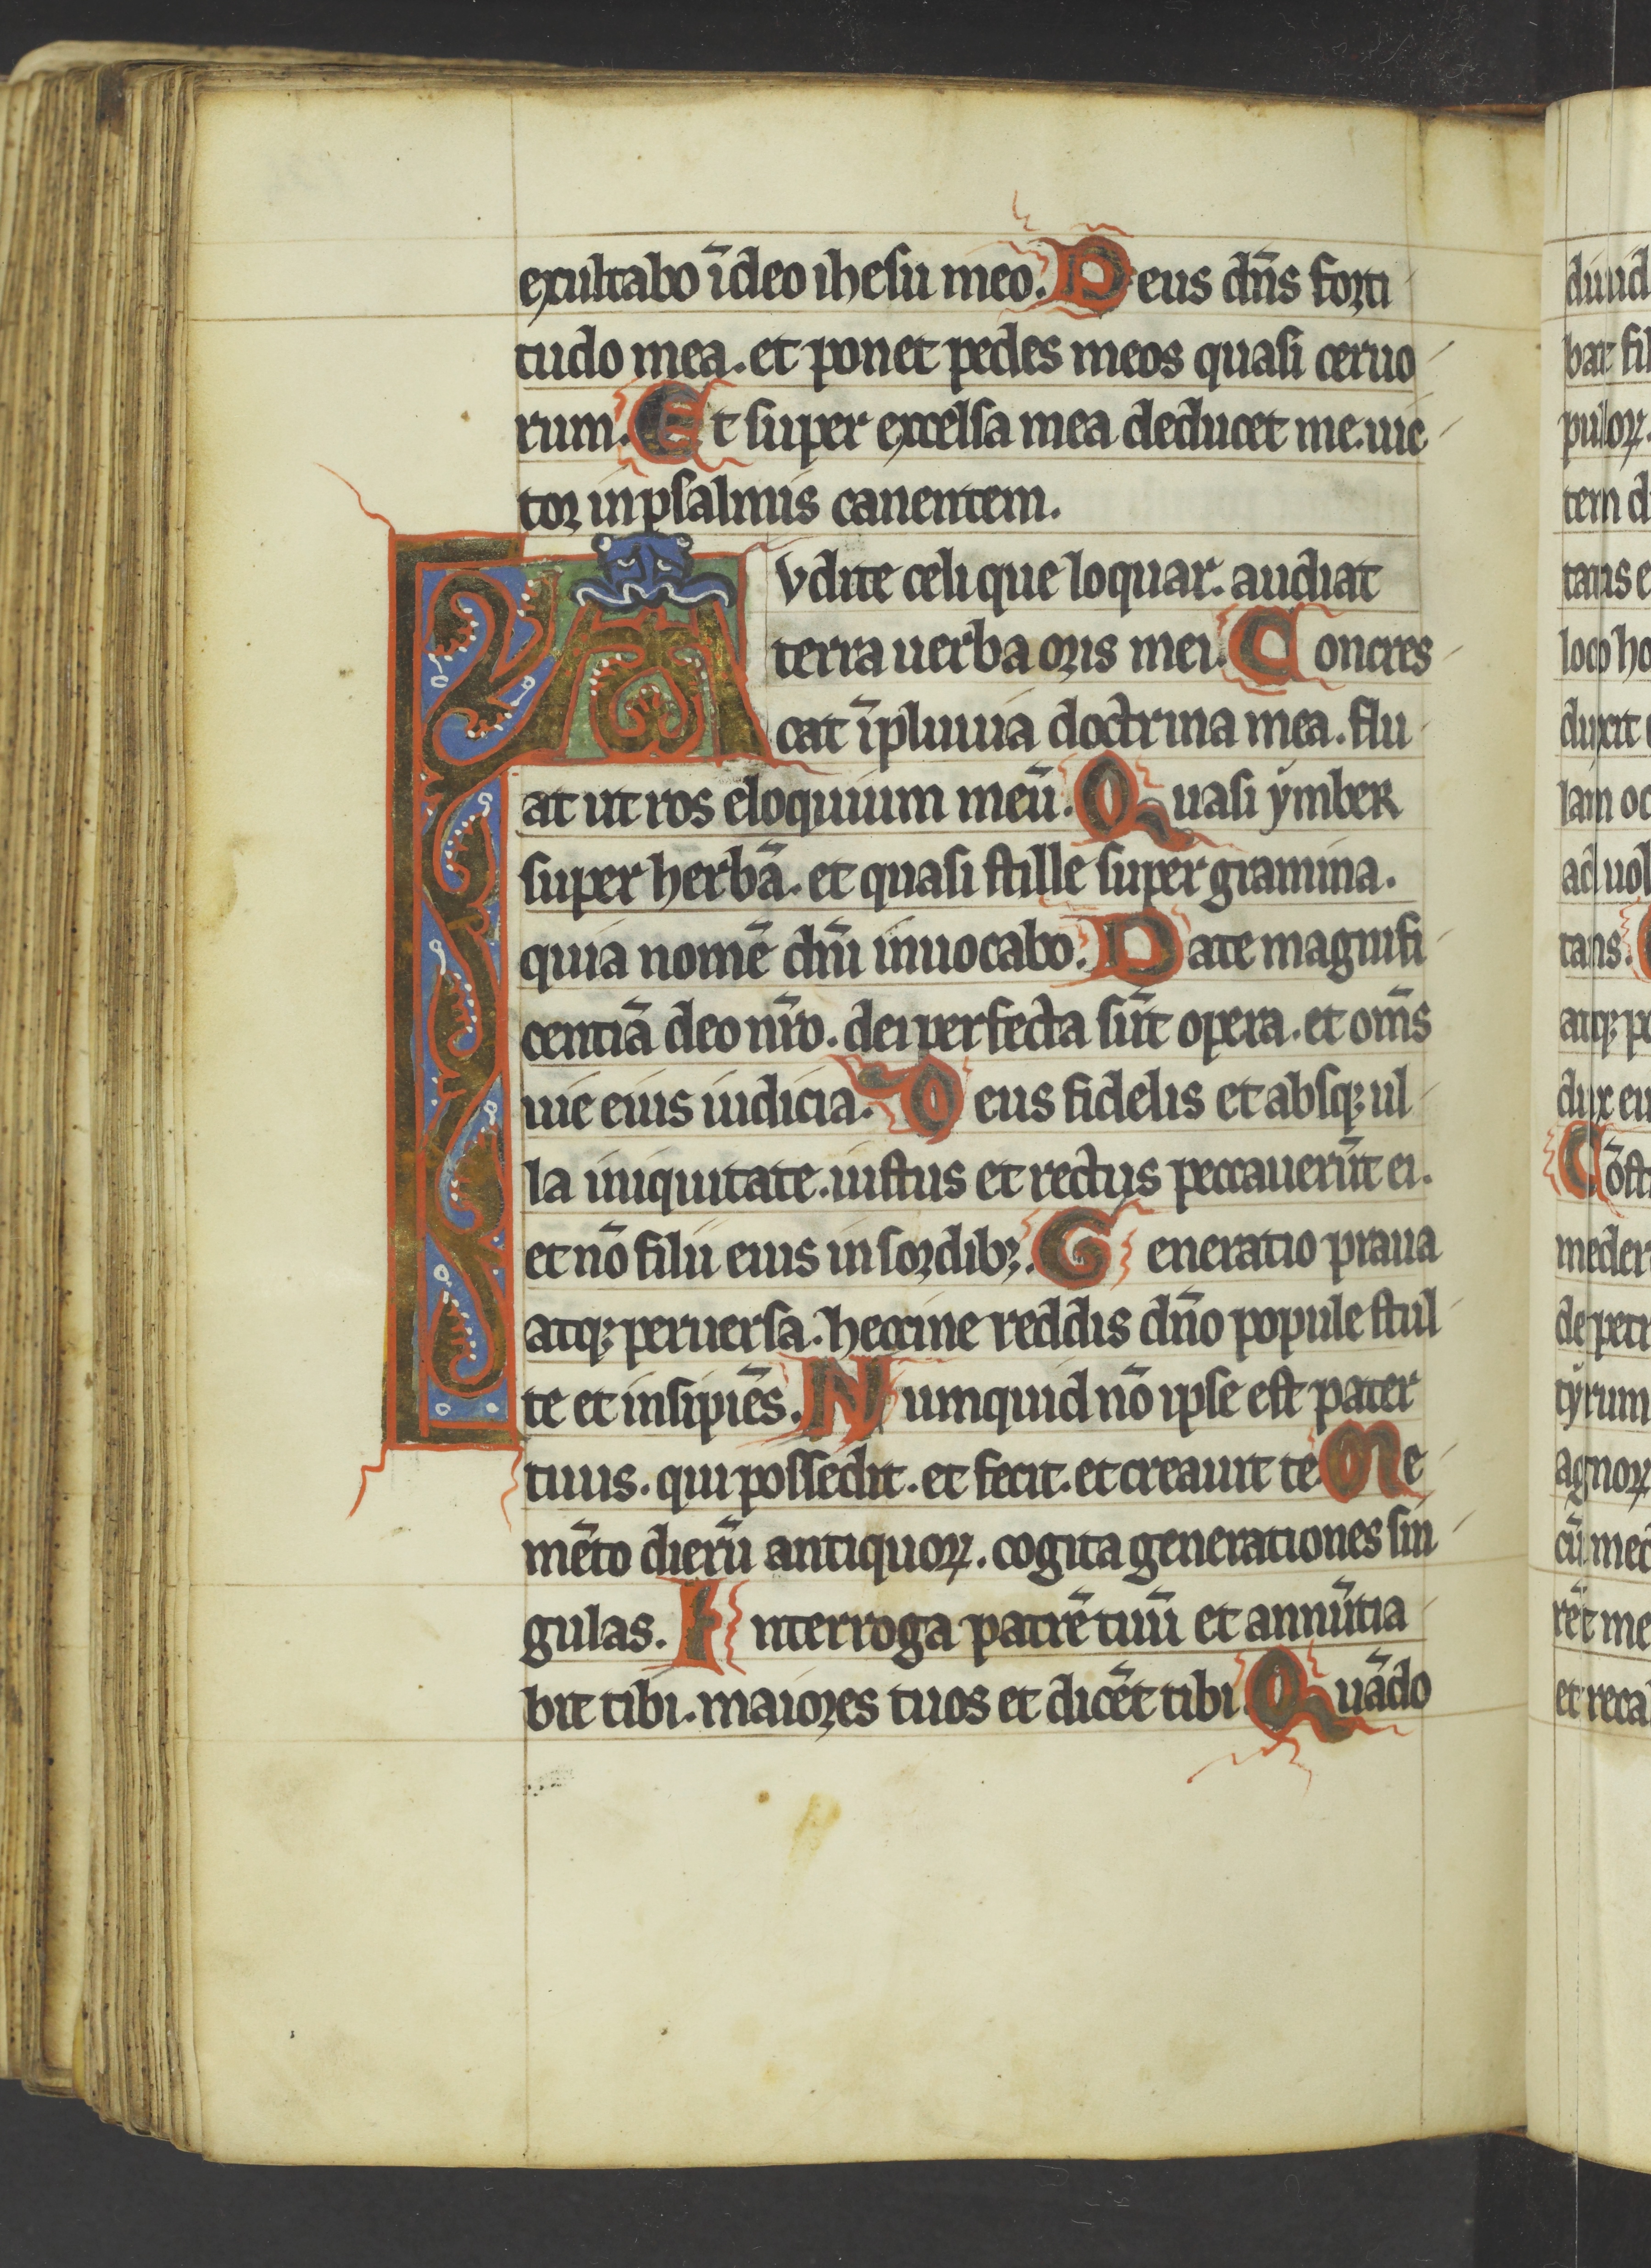 exultabo ī deo ihesu meo. Deus dn̄s forti
tudo mea. et ponet pedes meos quasi ceruo
rum. Et super excelsa mea deducet me. uic
tor in psalmis canentem.
Avdite celi que loquar. audiat
terra uerba oris mei. Concres
cat ī pluuia doctrina mea. flu
at ut ros eloquium meū. Quasi ymber
super herbā. et quasi stille super gramina.
quia nomē dn̄i inuocabo. Date magnifi
centiā deo nr̄o. dei perfecta sūt opera. et om̄s
uie eius iudicia. Deus fidelis et absqꝫ ul
la iniquitate. iustus et rectus peccauerūt ei.
et nō filii eius in sordibꝫ. Generatio praua
atqꝫ peruersa. heccine reddis dn̄o popule stul
te et insipiēs. Numquid nō ipse est pater
tuus. qui possedit. et fecit. et creauit te. Me
mēto dierū antiquoꝝ. cogita generationes sin
gulas. Interroga patrē tuū et annūtia
bit tibi. maiores tuos et dicēt tibi. Quādo